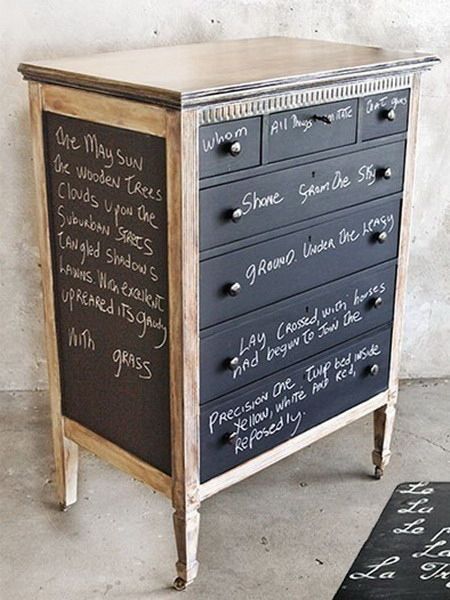 The MAY SUN
The wooden Trees
Clouds upon the
Suburban Streets
Tangled Shadows
Lawns. With excellent
upreared its gaudy
With grass
Whom
All Things imitate
That guns
Shone from the Sky
GROUND. Under the Leafy
LAY Crossed, with horses
Had begun to Join the
PRECISION the Tulip bed inside
Yellow, White AND Red,
Reposedly.
Le
La
Le
La
La Tr